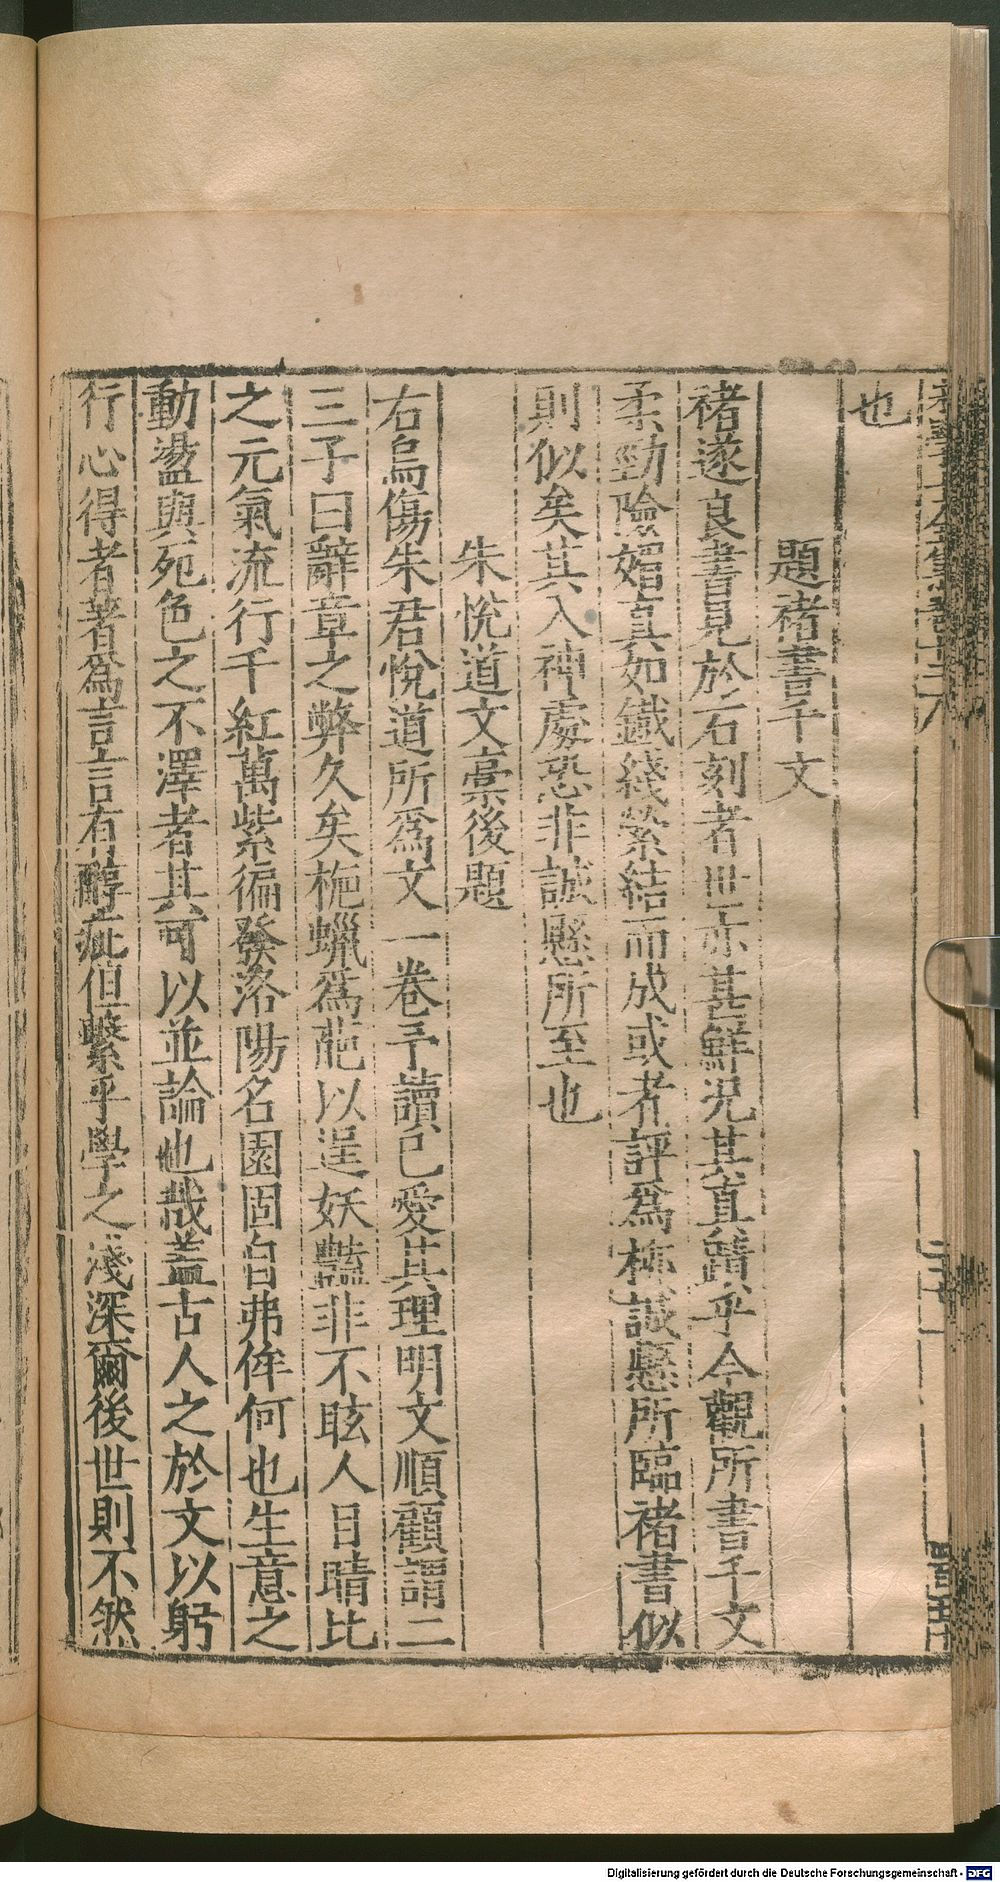 也
題褚書千文
褚遂良書見於石刻者世亦甚鮮況其真蹟乎今觀所書千文
柔勁險媚真如鐵綫縈結而成或者評爲栁誠懸所臨褚書似
則似矣其入神處恐非誠懸所至也
朱悅道文藁後題
右烏傷朱君悅道所爲文一卷予讀已愛其理明文順顧謂二
三子曰辭章之弊久矣梔蠟爲葩以逞妖豔非不眩人目睛比
之元氣流行千紅萬紫徧發洛陽名園固自弗侔何也生意之
動盪與死色之不澤者其可以並論也哉蓋古人之於文以躬
行心得者著爲言言有醇疵但繫乎學之淺深爾後世則不然
Digitalisierung gefördert durch die Deutsche Forschungsgemeinschaft - DFG